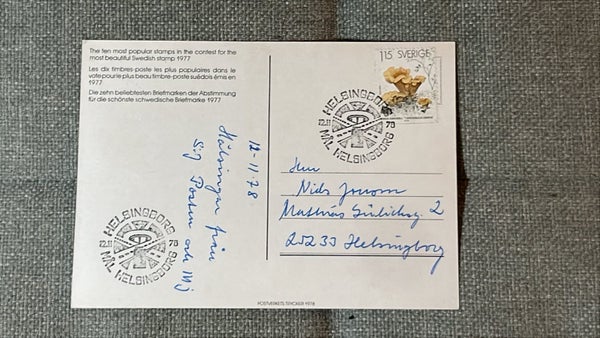 The ten most popular stamps in the contest for the
most beautiful Swedish stamp 1977
Les dix timbres-poste les plus populaires dans le
vote pour le plus beau timbre-poste suédois émis en
1977
Die zehn beliebtesten Briefmarken der Abstimmung
für die schönste schwedische Briefmarke 1977
12-11-78
Hälsningar från
HELSINGBORG
12.11 78
MÅL HELSINGBORG
115 SVERIGE
HELSINGBORG
12.11 78
MÅL HELSINGBORG
Herr
Niels
Mathias 2
25233 Helsingborg
POSTVERKETS TRYCKERI 1978